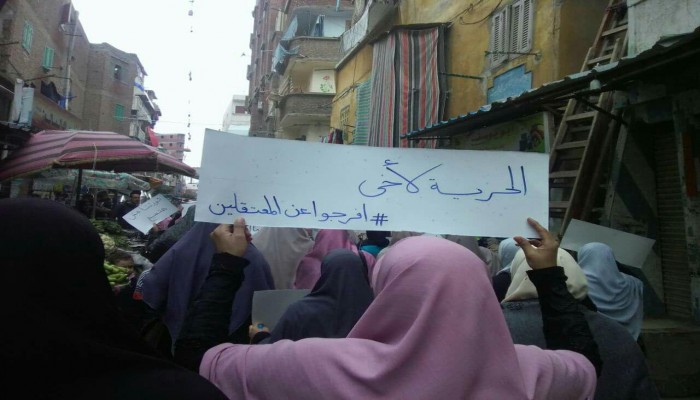 الحرية لأخي
#افرجوا عن المعتقلين